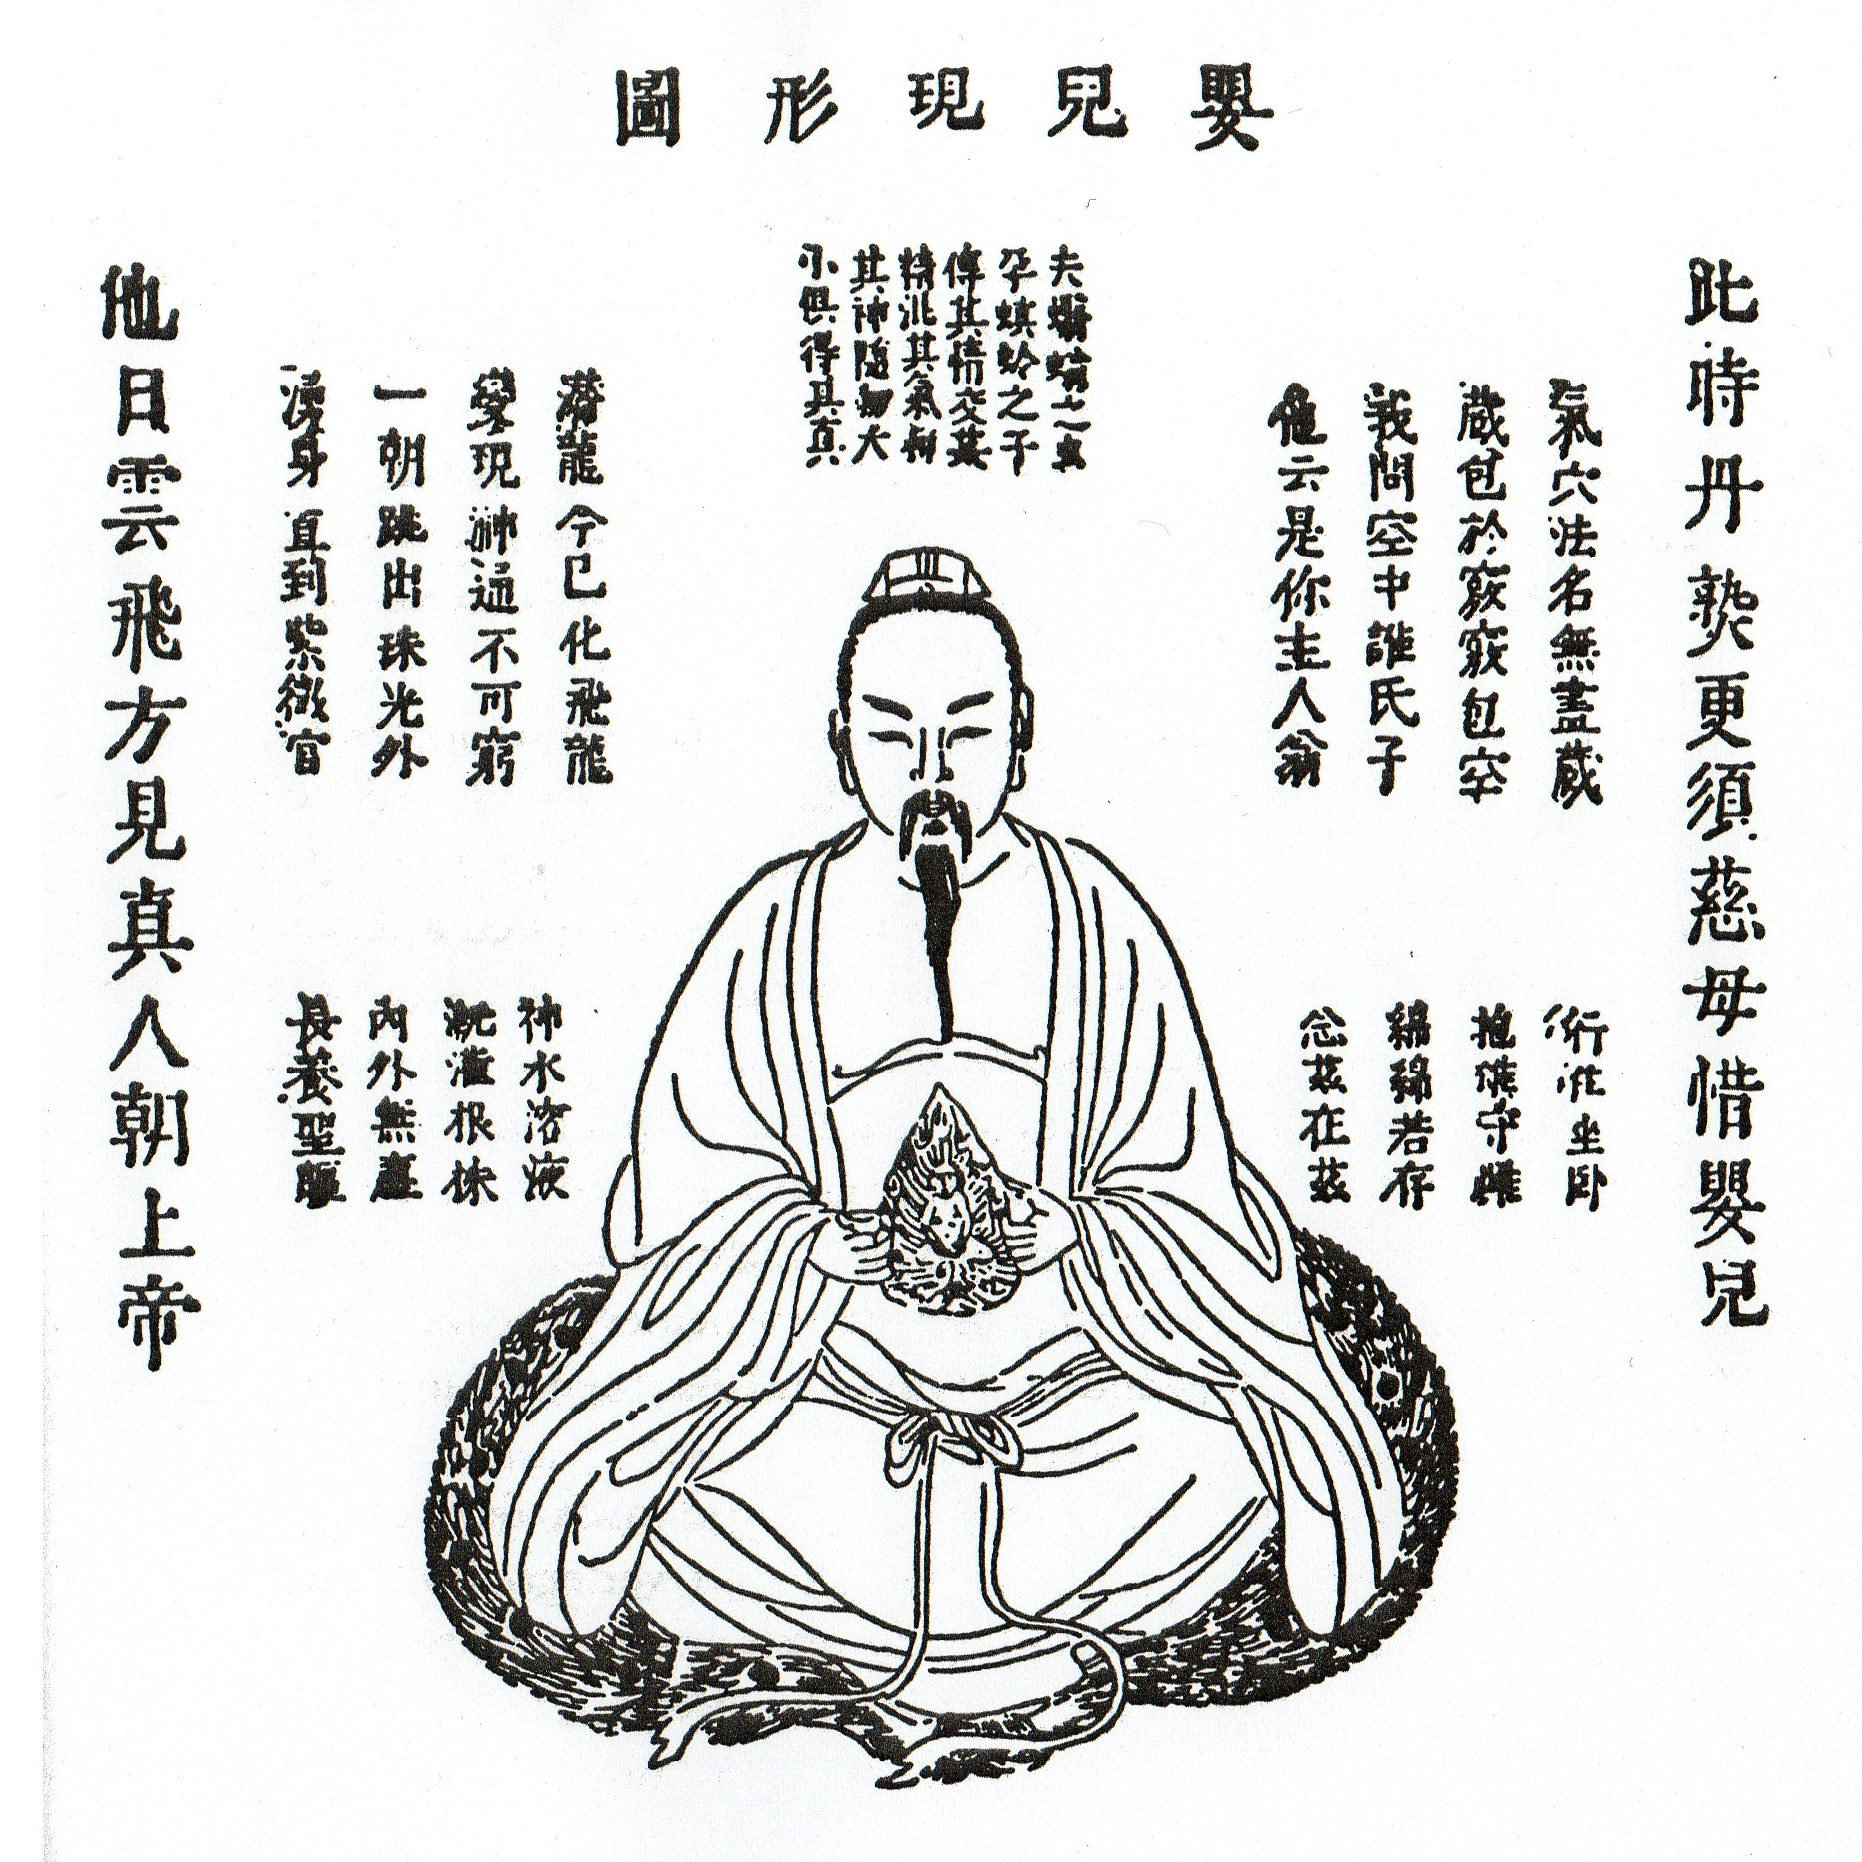 嬰兒現形圖
此時丹熟更須慈母惜嬰兒
氣穴法名無盡藏
藏包於竅竅包空
我問空中誰氏子
他云是你主人翁
行住坐卧
抱雄守雌
綿綿若存
念茲在茲
夫蠮螉之虫
孕螟蛉之子
傳其情交其
精混其氣和
其神隨物大
小俱得其真
潛龍今已化飛龍
變現神通不可窮
一朝跳出珠光外
湧身直到紫微宮
神水溶液
溉灌根株
內外無塵
長養聖軀
他日雲飛方見真人朝上帝